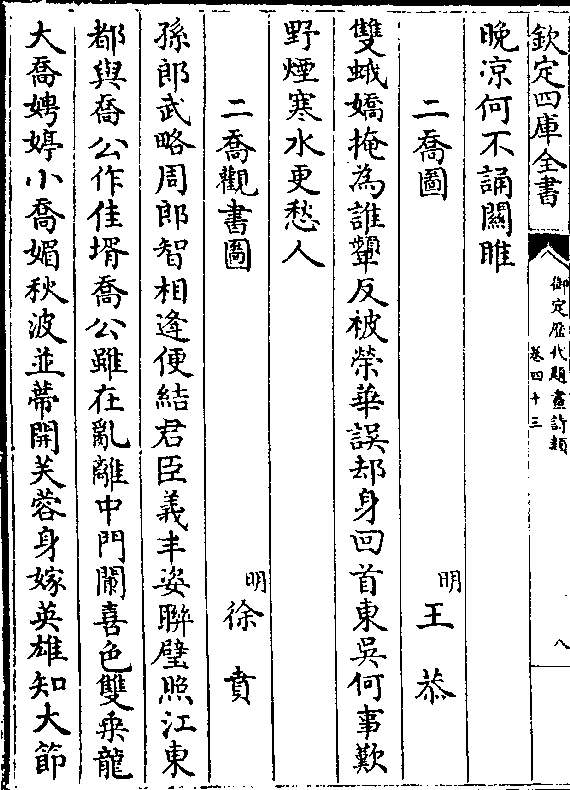 欽定四庫全書
御定歴代題畫詩類
卷四十三
八
晚凉何不誦關雎
二喬圖
明王恭
雙蛾嬌掩為誰顰反被榮華誤却身回首東吳何事歎
野煙寒水更愁人
二喬觀書圖
明徐賁
孫郎武略周郎智相逢便結君臣義丰姿聯璧照江東
都與喬公作佳壻喬公雖在亂離中門闌喜色雙乗龍
大喬娉婷小喬媚秋波並蒂開芙蓉身嫁英雄知大節